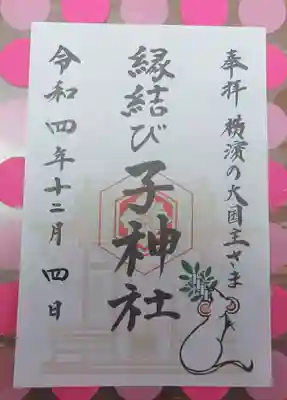 奉拝 横濱の大国主さま
縁結び子神社
令和四年十二月四日